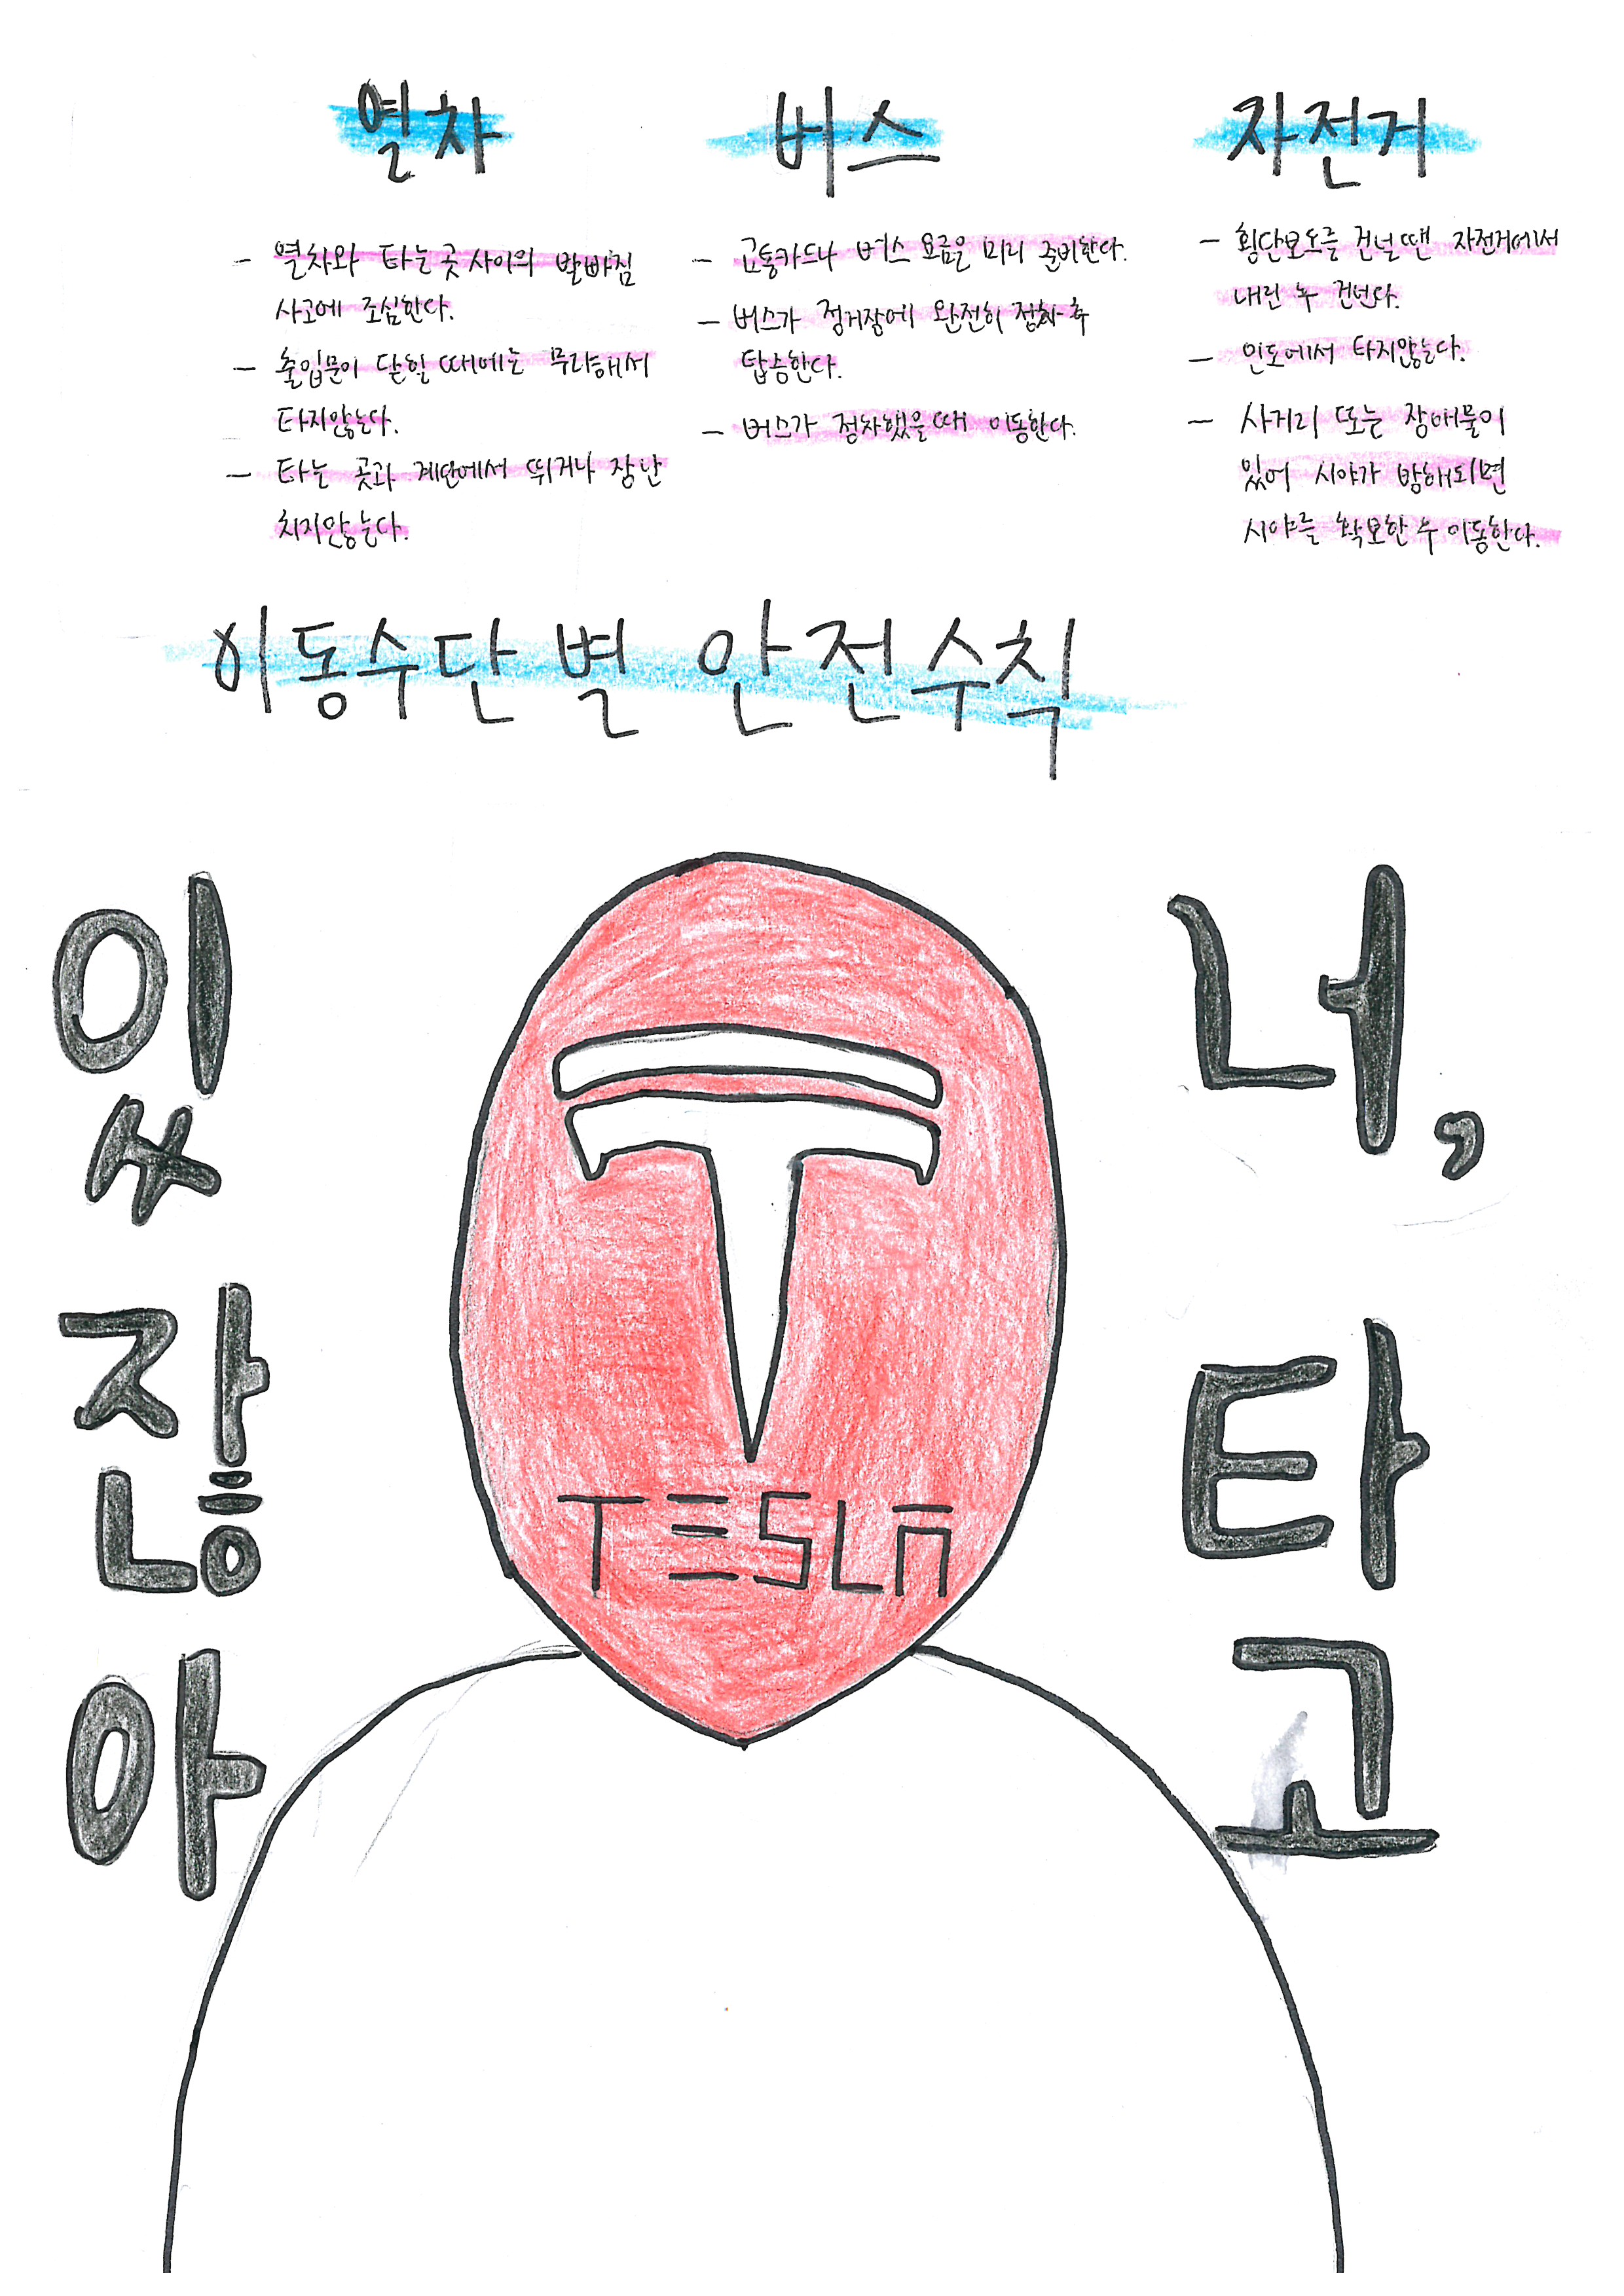 열차
- 열차와 타는곳 사이의 발빠짐
사고에 조심한다.
- 출입문이 닫힐 때에는 무리해서
타지않는다.
- 타는 곳과 계단에서 뛰거나 장난
치지않는다.
버스
- 교통카드나 버스 요금을 미리 준비한다.
- 버스가 정거장에 완전히 정차 후
탑승한다.
- 버스가 정차했을때 이동한다.
자전거
- 횡단보도를 건널땐 자전거에서
내린 후 건넌다.
- 인도에서 타지않는다.
- 사거리 또는 장애물이
있어 시야가 방해되면
시야를 확보한 후 이동한다.
이동수단 별 안전수칙
너,
타
고
있
잖
아
TESLA